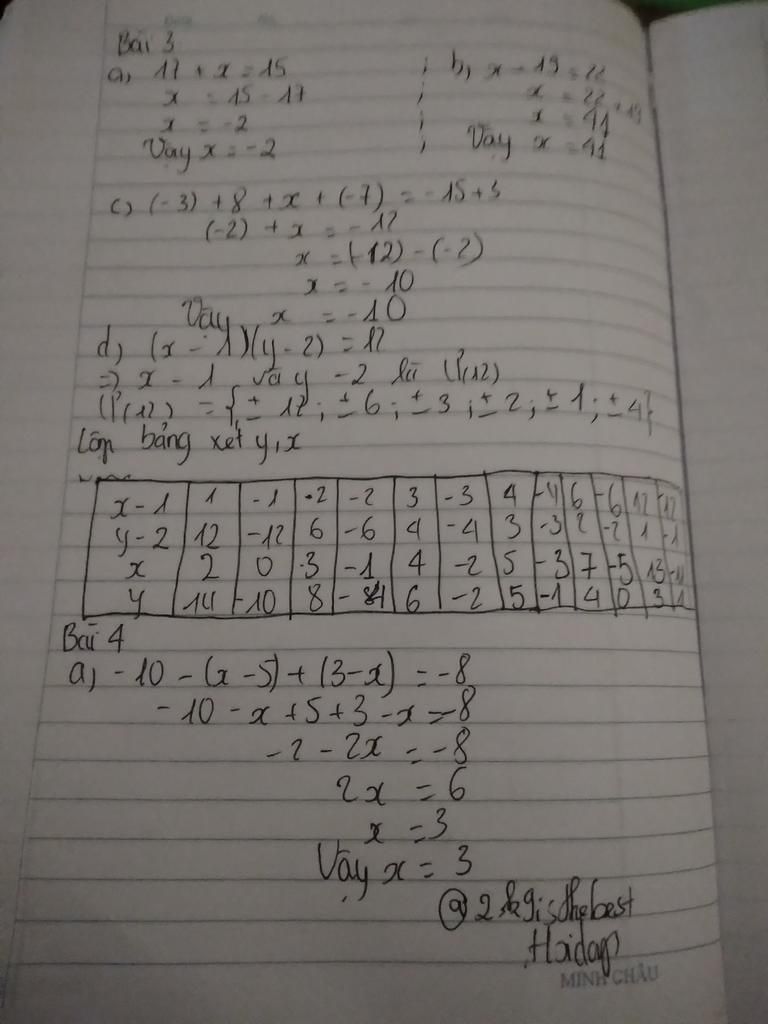 Bài 3
a, 17 + x = 15 ; b, x - 19 = 22
x = 15 - 17 ; x = 22 + 19
x = -2 ; x = 41
Vậy x = -2 ; Vậy x = 41
c, (-3) + 8 + x + (-7) = -15 + 3
(-2) + x = -12
x = (-12) - (-2)
x = -10
Vậy x = -10
d, (x - 1)(y - 2) = 12
=> x - 1 và y - 2 là Ư(12)
Ư(12) = {± 12 ; ± 6 ; ± 3 ; ± 2 ; ± 1 ; ± 4}
Lập bảng xét y, x
x - 1 1 -1 2 -2 3 -3 4 -4 6 -6 12 -12
y - 2 12 -12 6 -6 4 -4 3 -3 2 -2 1 -1
x 2 0 3 -1 4 -2 5 -3 7 -5 13 -11
y 14 -10 8 -4 6 -2 5 -1 4 0 3 1
Bài 4
a, -10 - (x - 5) + (3 - x) = -8
-10 - x + 5 + 3 - x = -8
-2 - 2x = -8
2x = 6
x = 3
Vậy x = 3
@2k9isthebest
Hoidap
MINH CHÂU